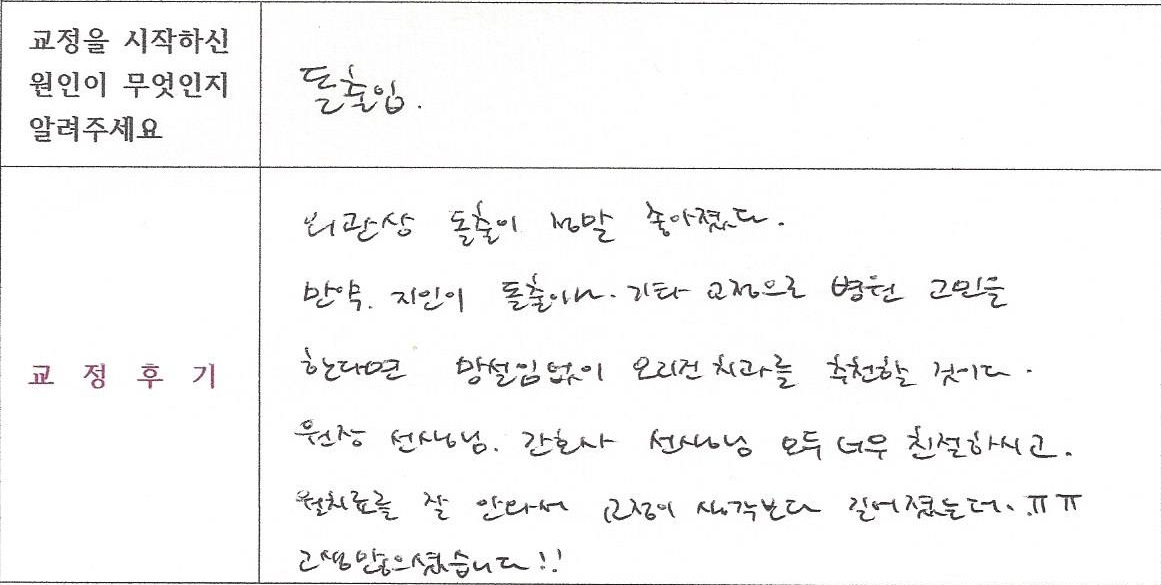 교정을 시작하신
원인이 무엇인지
알려주세요
돌출입.
교정후기
외관상 돌출이 정말 좋아졌다.
만약. 지인이 돌출이나. 기타 교정으로 병원 고민을
한다면 망설임없이 오리진치과를 추천할 것이다.
원장 선생님. 간호사 선생님 모두 너무 친절하시고.
월치료를 잘 안와서 교정이 생각보다 길어졌는데. ㅠㅠ
고생많으셨습니다!!